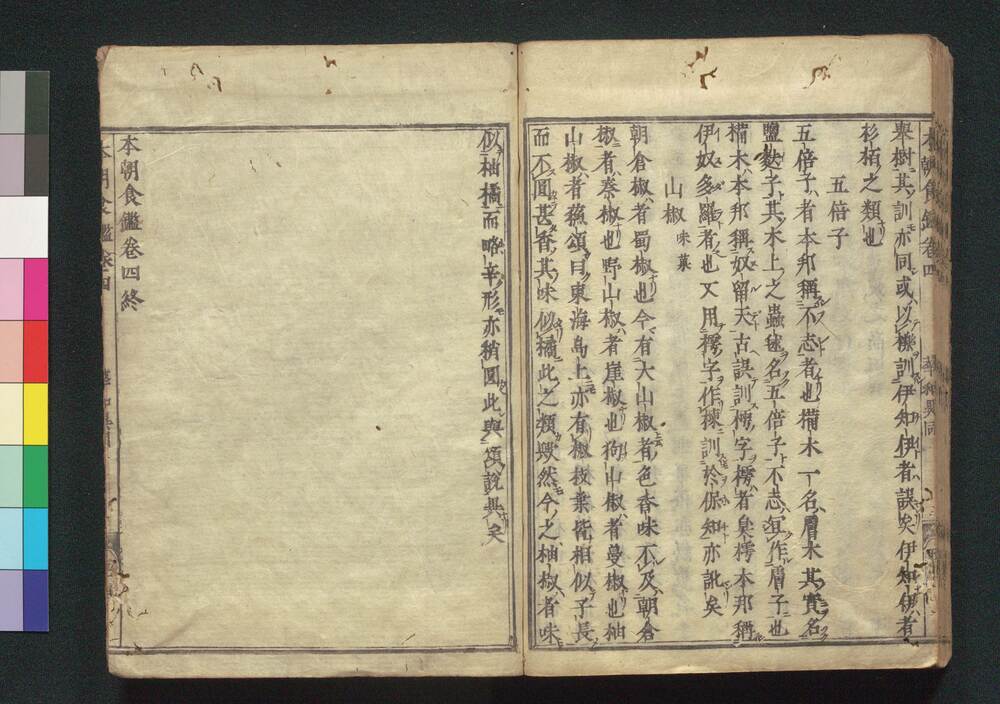 本朝食鑑卷四 華和異同
舉樹其訓亦同或以櫟訓伊知伊者誤矣伊知伊者
杉栢之類也
五倍子
五倍子者本邦稱不志者也構木一名膚木其實名
鹽麩子其木上之蟲毬名五倍子不志宜作膚子也
構木本邦稱奴留天古誤訓樗字樗者臭樗本邦稱
伊奴多羅者也又用樗字作棟訓於保知亦訛矣
山椒 味菓
朝倉椒者蜀椒也今有大山椒者色香味不及朝倉
椒者秦椒也野山椒者崖椒也狗山椒者蔓椒也柚
山椒者蘓頌曰東海島上亦有椒枝葉皆相似子長
而不圓甚香其味似橘此之類歟然今之柚椒者味
似柚橘而略辛形亦稍圓此與頌說異矣
本朝食鑑卷四終